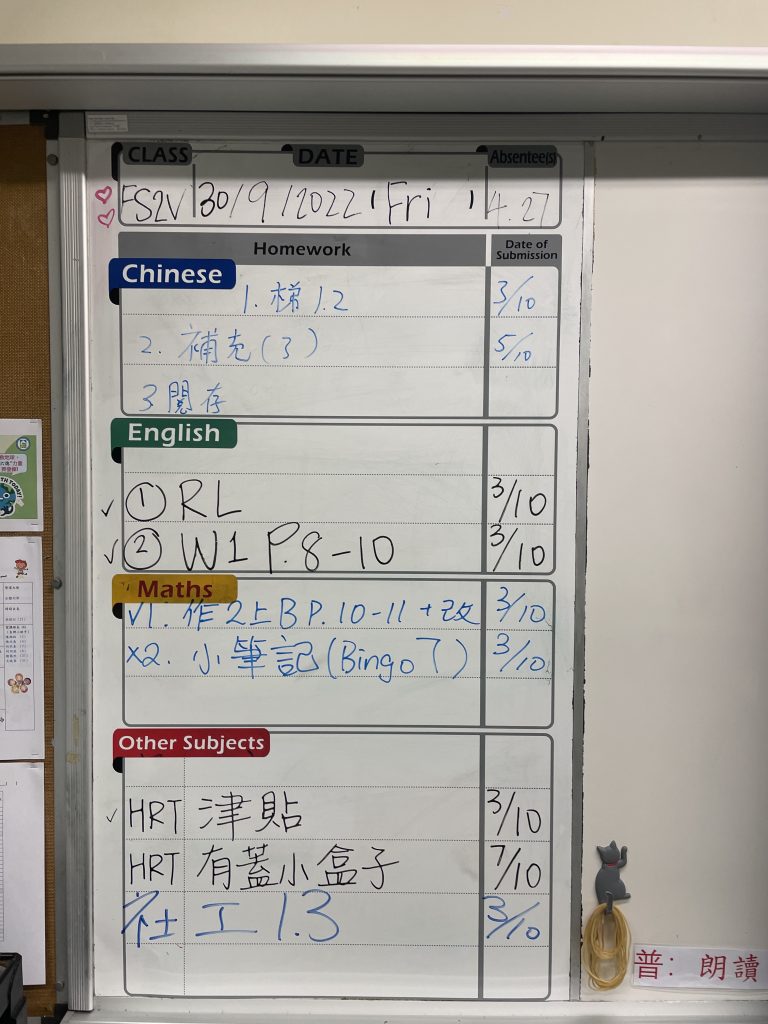 CLASS DATE Absentee(s)
FS2V 30/9/2022 (Fri) 4.27
Homework Date of Submission
Chinese
1. 梯1.2 3/10
2. 補充(3) 5/10
3. 閱存
English
✓ ① RL 3/10
✓ ② W1 P.8-10 3/10
Maths
✓1. 作2上B P.10-11 + 改 3/10
×2. 小筆記(Bingo了) 3/10
Other Subjects
✓ HRT 津貼 3/10
HRT 有蓋小盒子 7/10
社工1.3 3/10
普：朗讀